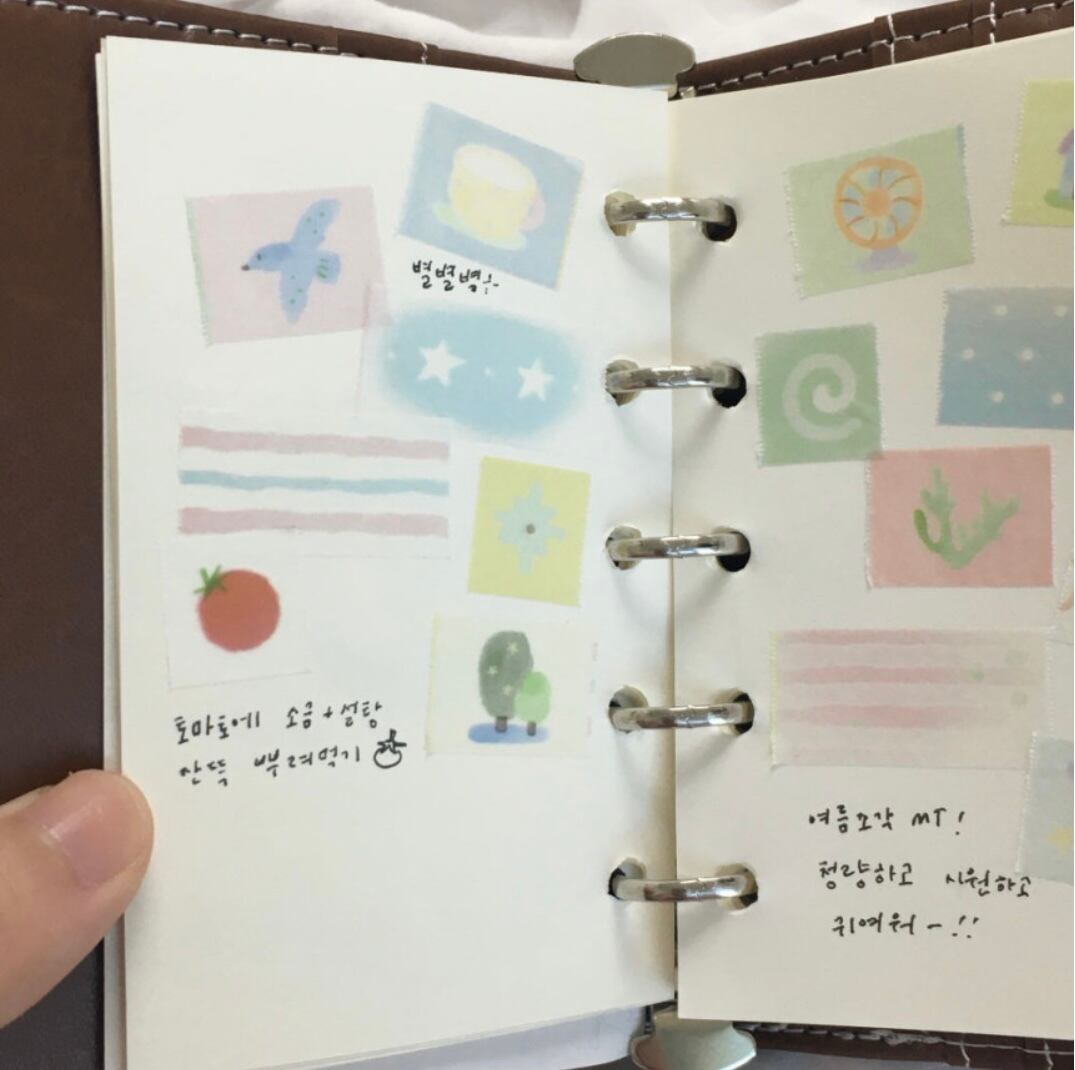 별별별!~
토마토에 소금+설탕
잔뜩 뿌려먹기
여름조각 MT!
청량하고 시원하고
귀여워~!!